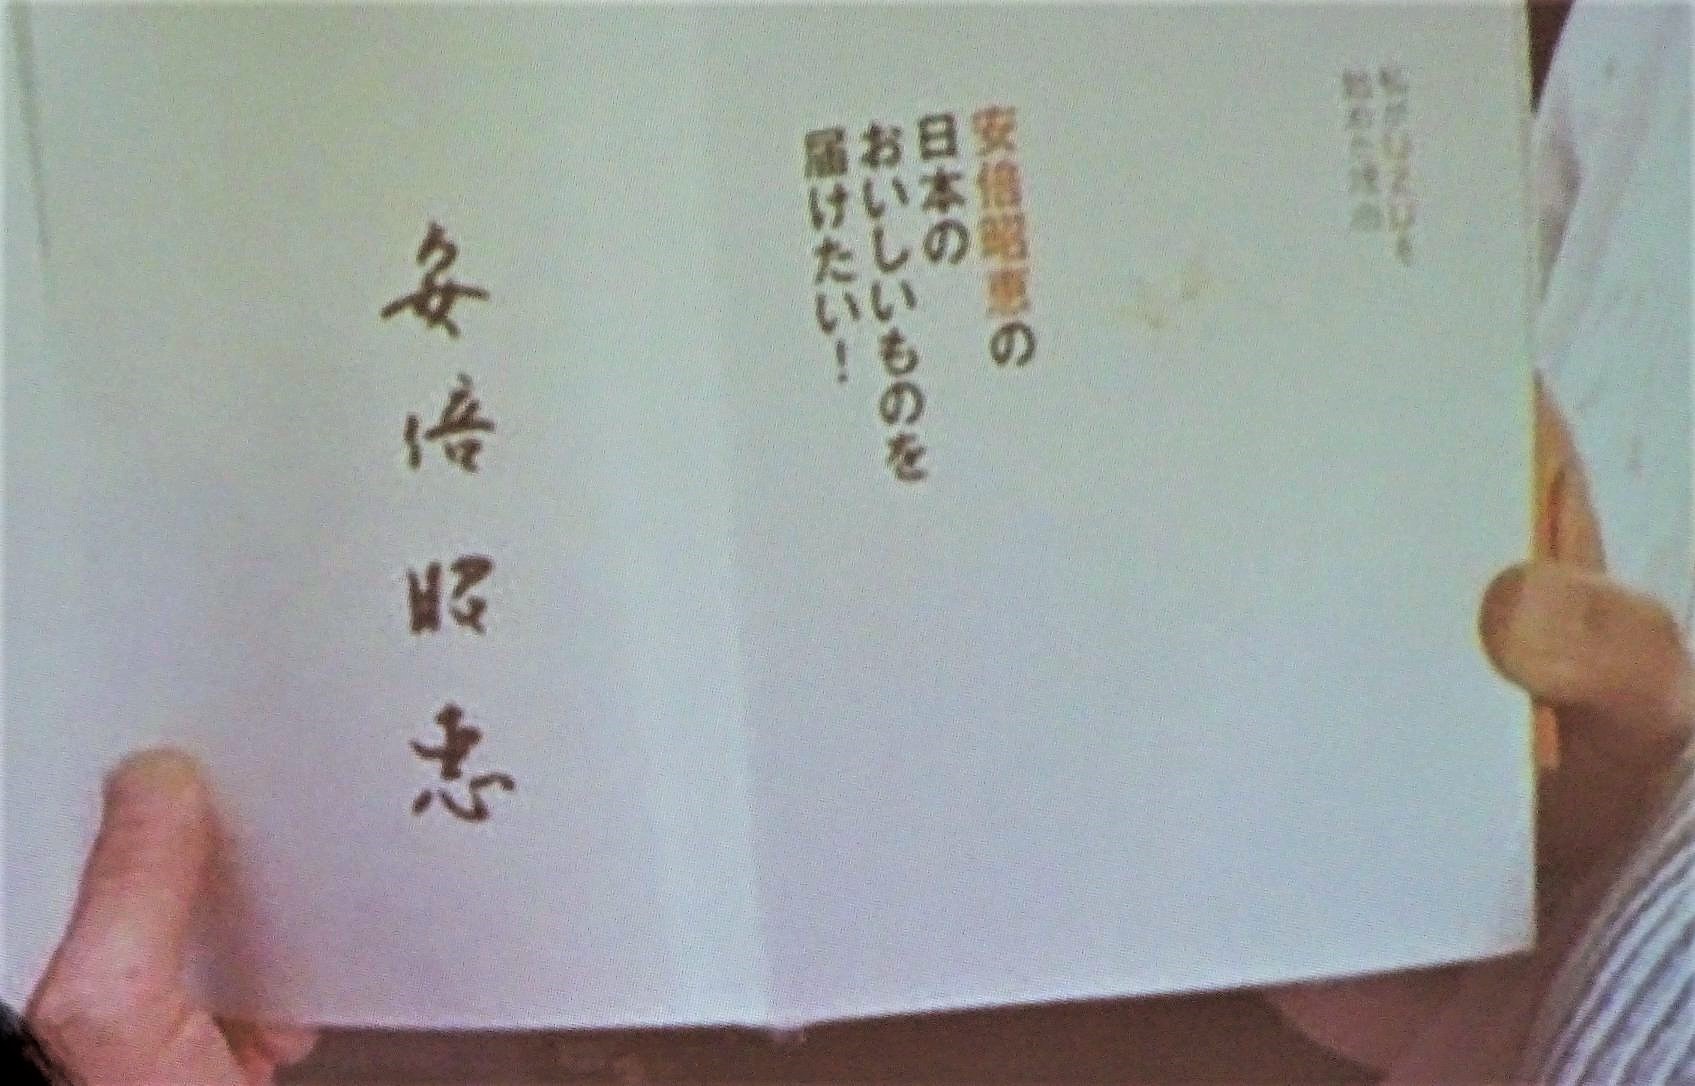 安倍昭恵の
日本の
おいしいものを
届けたい！
安倍昭恵